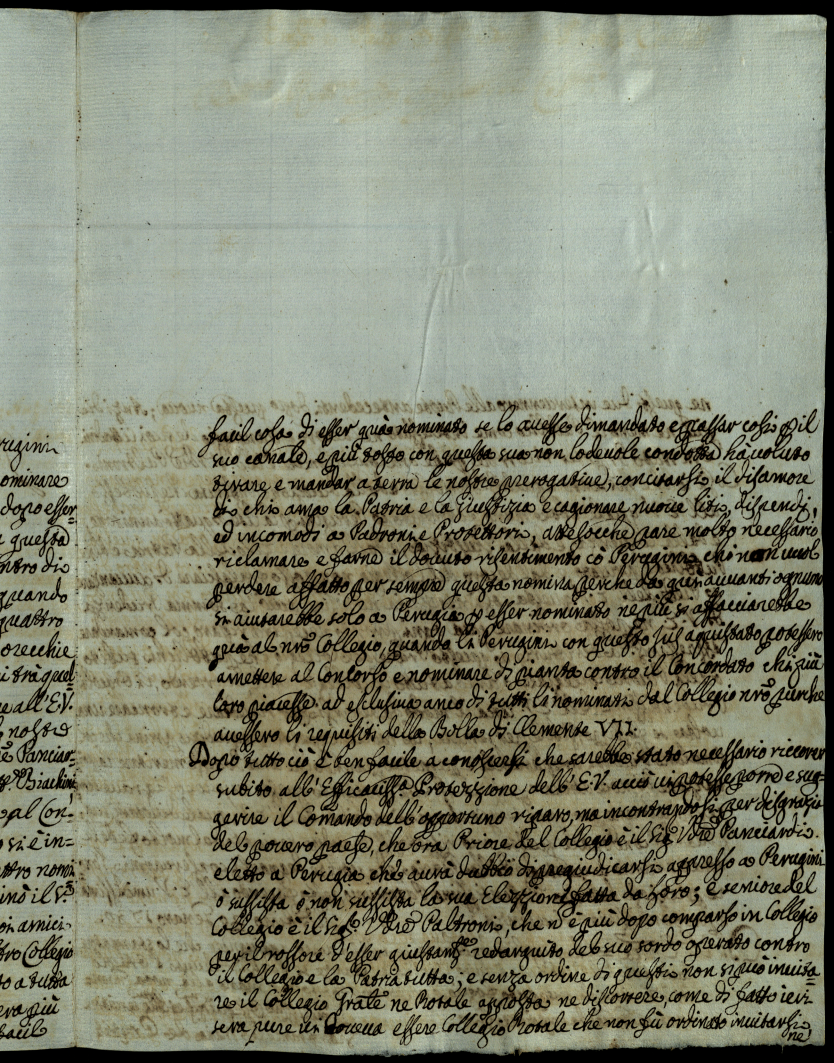 rugini
ominare
dopo esser=
questa
ntro di
quando
quattro
orecchie
i trà quel
e all'E.V.
nostro
Panciar=
Biachini
o al Con=
o si è in=
attro nomi
inò il
on amici
tro Collegio
to a tutta
era più
facil
facil cosa di esser quà nominato se lo avesse dimandato e passar così p il
suo canale, e più tosto con questa sua non lodevole condotta hà voluto
tirare e mandar a terra le nostre prerogative, concitarsi il disamore
di chi ama la Patria e la Giustizia e cagionare nuove liti, dispendi,
ed incomodi a Padroni e Protettori, attesocche pare molto necessario
riclamare e farne il dovuto risentimento cò Perugini chi non vuol
perdere affatto per sempre questa nomina perche da quì avvanti ognuno
si aiutarebbe solo a Perugia p esser nominato ne più si affacciarebbe
quà al nrô Collegio, quando li Perugini con questo jus aquistato potessero
amettere al Concorso e nominare di quanta contro il Concordato chi più
loro piacesse ad esclusiva anco di tutti li nominati dal Collegio nrô purche
avessero li requisiti della Bolla di Clemente VII.
Dopo tutto ciò è ben facile a conoscersi che sarebbe stato necessario ricorrer
subito all'Efficacissa Protezzione dell'E.V. acciò vi potesse porre e sug=
gerire il Comando dell'opportuno riparo, ma incontrandosi per disgrazia
del povero paese, che ora Priore del Collegio è il Sigr Panciardi
eletto a Perugia che avrà dubbio di pregiudicarsi appresso a Perugini
ò sussista ò non sussista la sua Elezzione fatta da loro; e seniore del
Collegio è il Sigr Paltroni, che n' è più dopo comparso in Collegio
per il rossore d'esser giustamte redarguito del suo sordo operato contro
il Collegio e la Patria tutta; e senza ordine di questi non si può invita=
re il Collegio ne Rotale apposta ne discorrere, come di fatto ieri
sera pure vi doveva essere Collegio Rotale che non fù ordinato invitarsi,
ne